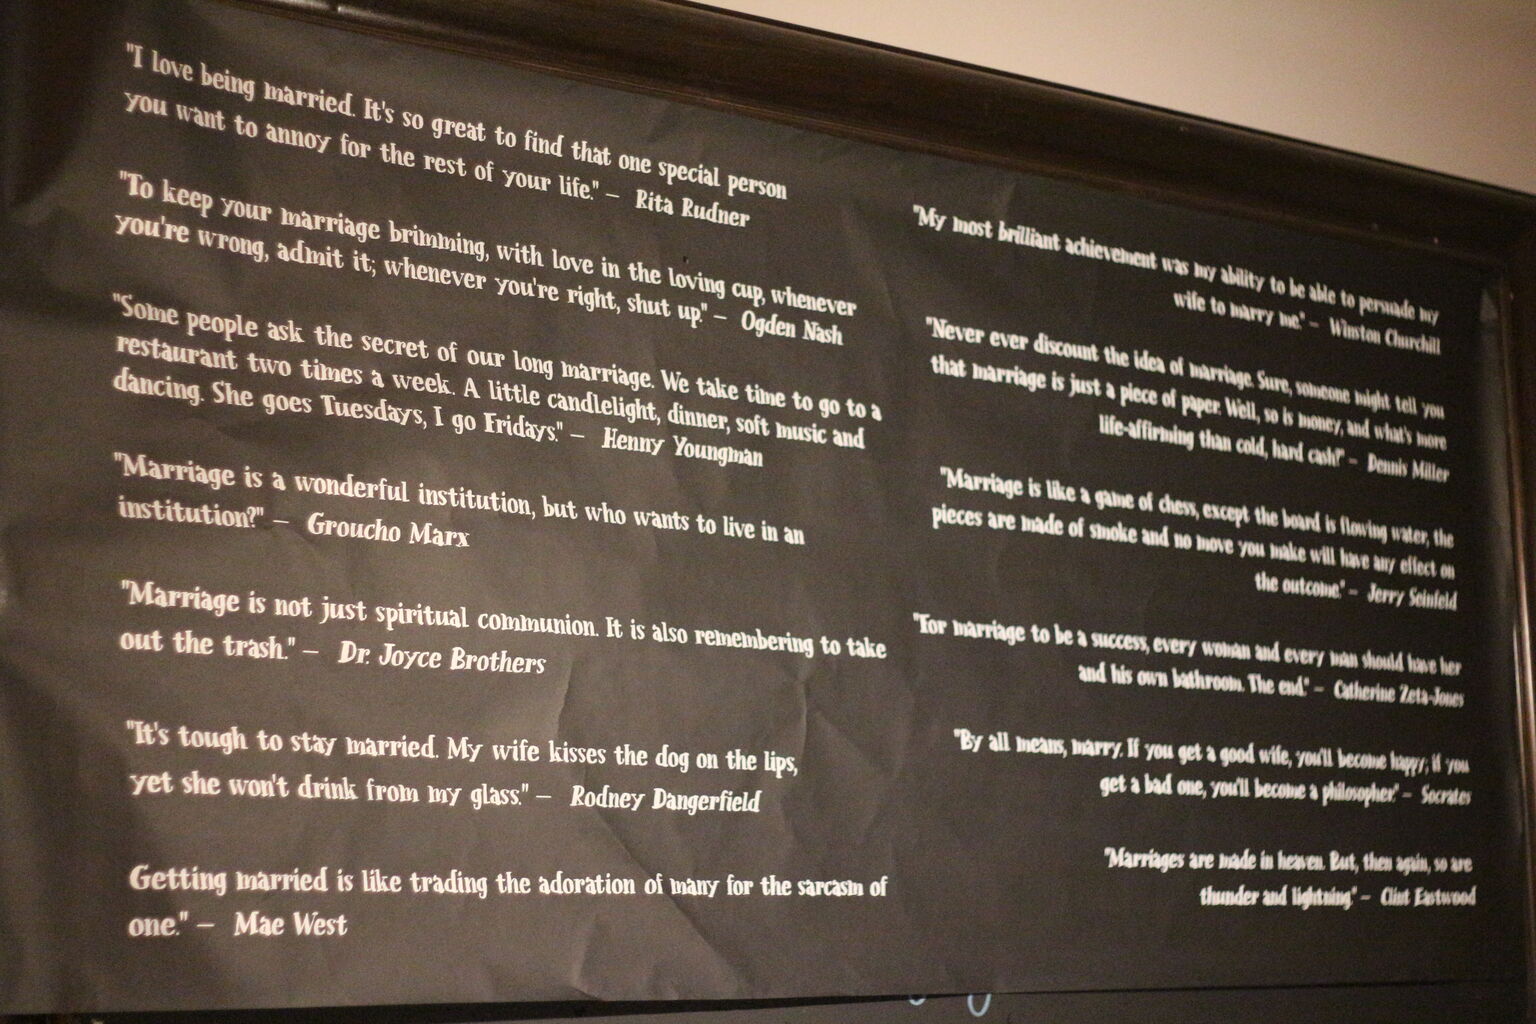 "I love being married. It's so great to find that one special person
you want to annoy for the rest of your life." – Rita Rudner
"To keep your marriage brimming, with love in the loving cup, whenever
you're wrong, admit it; whenever you're right, shut up." – Ogden Nash
"Some people ask the secret of our long marriage. We take time to go to a
restaurant two times a week. A little candlelight, dinner, soft music and
dancing. She goes Tuesdays, I go Fridays." – Henny Youngman
"Marriage is a wonderful institution, but who wants to live in an
institution?" – Groucho Marx
"Marriage is not just spiritual communion. It is also remembering to take
out the trash." – Dr. Joyce Brothers
"It's tough to stay married. My wife kisses the dog on the lips,
yet she won't drink from my glass." – Rodney Dangerfield
Getting married is like trading the adoration of many for the sarcasm of
one." – Mae West
"My most brilliant achievement was my ability to be able to persuade my
wife to marry me." – Winston Churchill
"Never ever discount the idea of marriage. Sure, someone might tell you
that marriage is just a piece of paper. Well, so is money, and what's more
life-affirming than cold, hard cash?" – Dennis Miller
"Marriage is like a game of chess, except the board is flowing water, the
pieces are made of smoke and no move you make will have any effect on
the outcome." – Jerry Seinfeld
"For marriage to be a success, every woman and every man should have her
and his own bathroom. The end." – Catherine Zeta-Jones
"By all means, marry. If you get a good wife, you'll become happy; if you
get a bad one, you'll become a philosopher." – Socrates
"Marriages are made in heaven. But, then again, so are
thunder and lightning." – Clint Eastwood